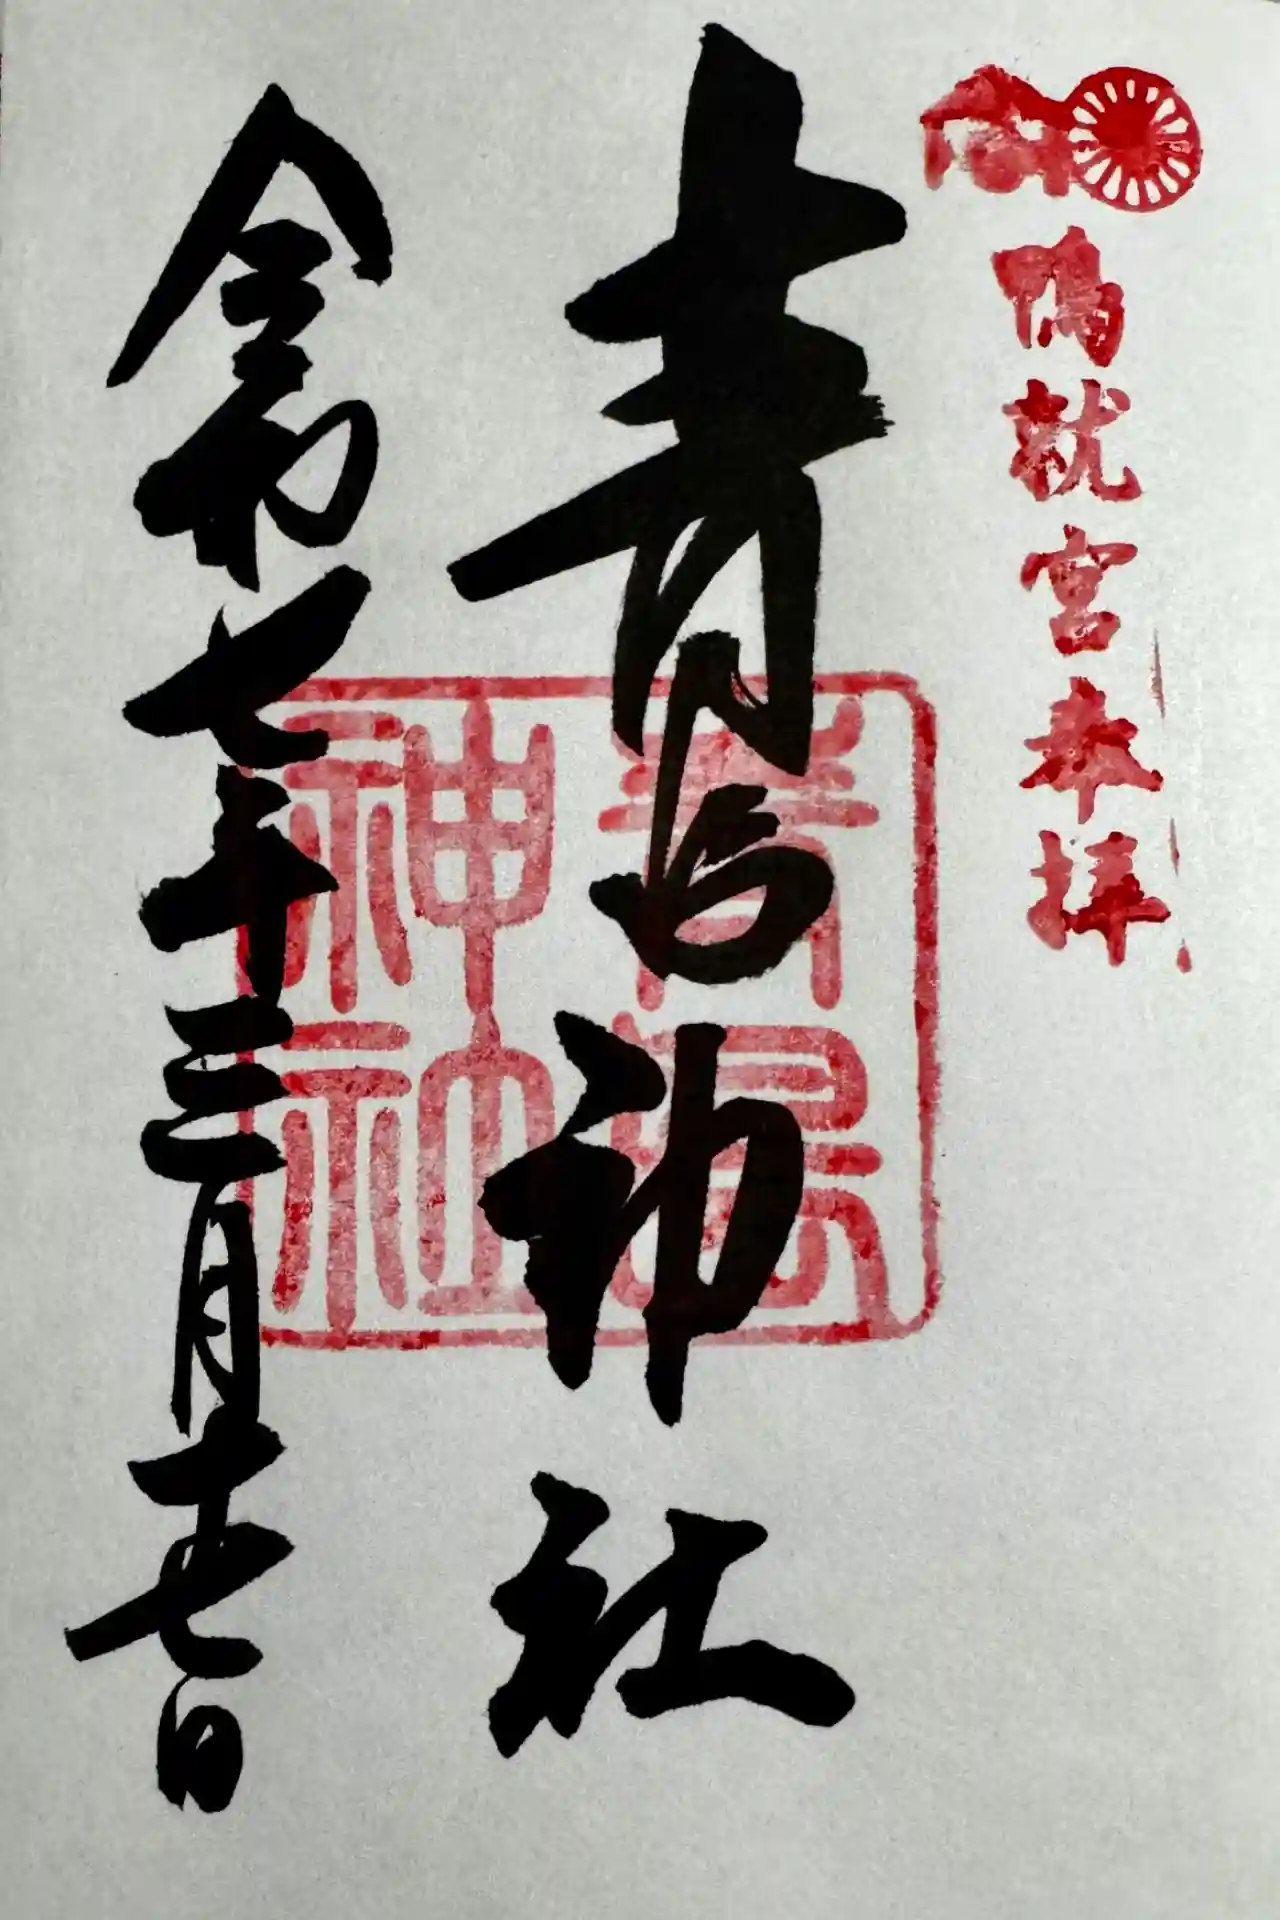 鴨就宮奉拝
青島神社
令和七年三月二十七日
青島
神社